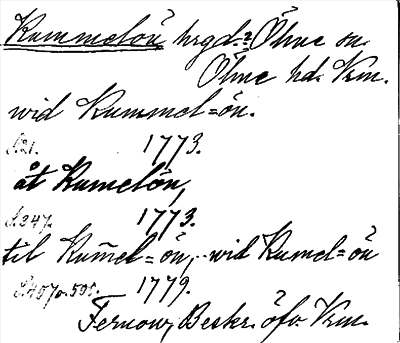 Kummelön hrgd.? Ölme sn.
Ölme hd. Vrm.
wid Kummel=ön.
S. 21. 1773.
åt Kumelön,
S. 247. 1773.
til Kum̃el=ön, wid Kumel=ön
S. 457 o. 501. 1779.
Fernow, Beskr. öfv. Vrm.